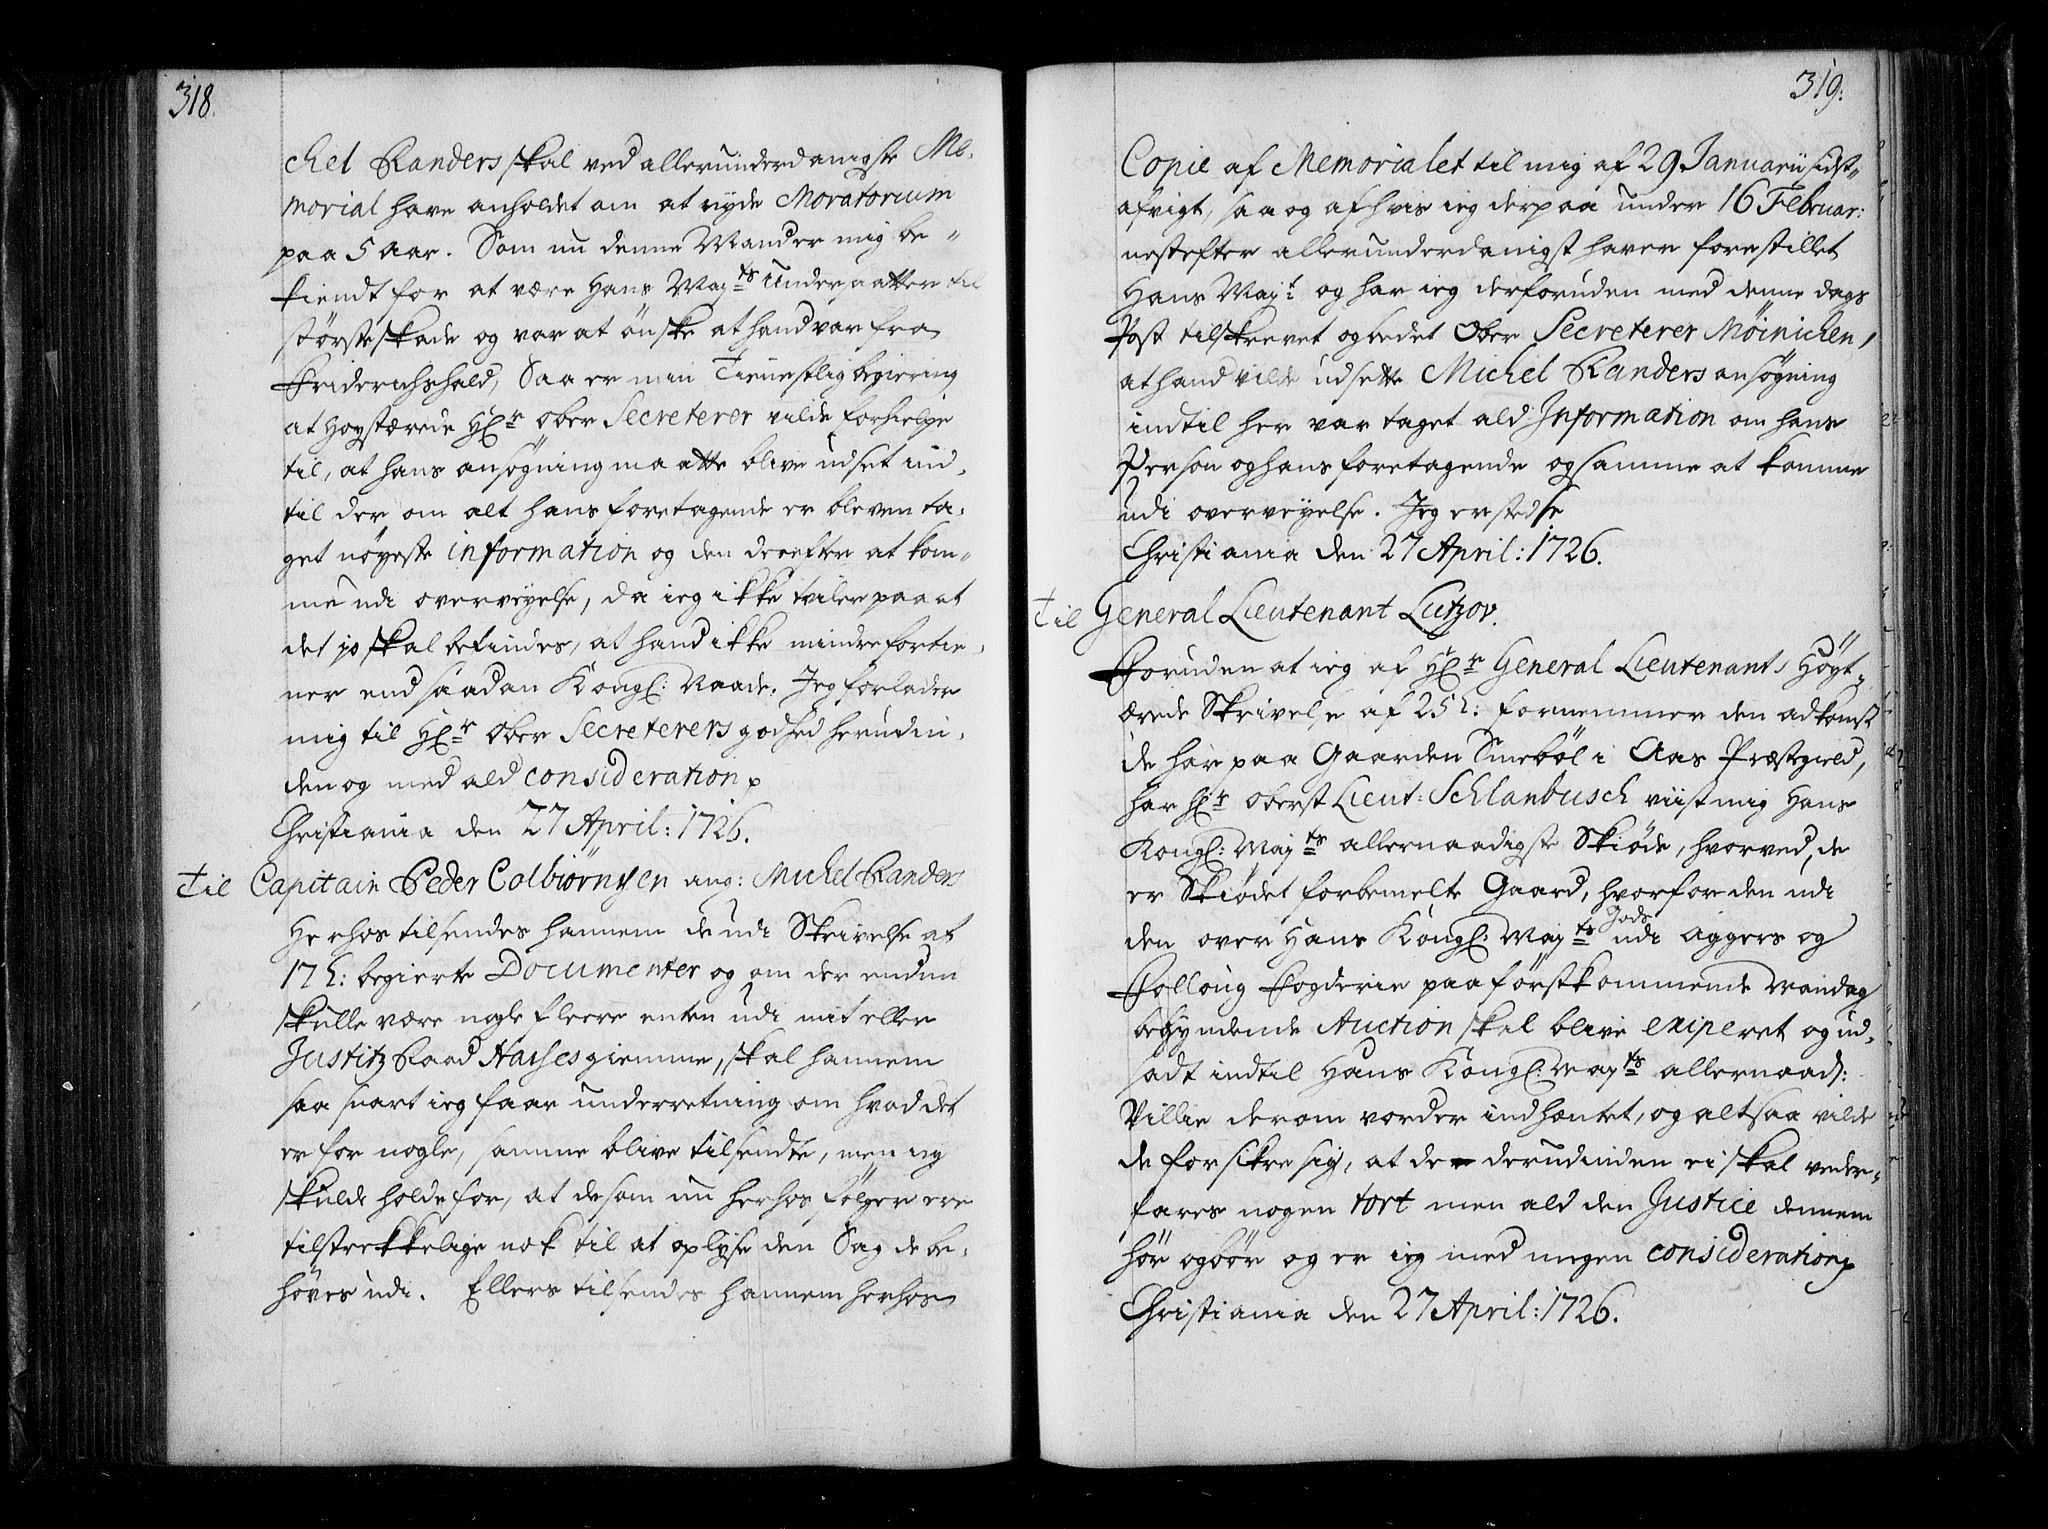 318.
chel Randers skal ved allerunderdanigste Me-
morial have anholdet om at nyde Moratorium
paa 5 aar. Som nu denne Mand er mig be-
kiendt for at være Hans Mayts Undersaatter til
störste skade og var at önske at hand var fra
Friderichshald, Saa er min Tienestlig begiering
at Høystærede Hr Ober Secreterer vilde forhielpe
til, at hans ansögning maatte blive udset ind-
til der om alt hans foretagende er bleven ta-
get nöyeste information og den derefter at kom-
me udi overveyelse, da ieg ikke tviler paa at
det jo skal befindes, at hand ikke mindre fortie-
ner end saadan Kongl: Naade. Jeg forlader
mig til Hr Ober Secreterers godhed herudin-
den og med ald consideration p
Christiania den 27 April: 1726.
Til Capitain Peder Colbiörnsen ang: Michel Randers
Herhos tilsendes hannem de udi Skrivelse af
17 h: begierte Documenter og om der endnu
skulle være nogle fleere enten udi mit eller
Justitz Raad Neves giemme, skal hannem
saa snart ieg faar underretning om hvad det
er for nogle, samme blive tilsendte, men ieg
skulde holde for, at de som nu herhos fölger ere
tilstrekkelige nok til at oplyse den Sag de be-
höves udi. Ellers tilsendes hannem herhos
319:
Copie af Memorialet til mig af 29 Januarii sidst-
afvigt, saa og af hvis ieg derpaa under 16 Februar:
nestefter allerunderdanigst haver forestillet
Hans Mayt og har ieg derforuden med denne dags
Post tilskrevet og bedet Ober Secreterer Möinichen,
at hand vilde udsette Michel Randers ansögning
indtil her var taget ald Information om hans
Person og hans foretagende og samme at komme
udi overveyelse. Jeg er stedse
Christiania den 27 April: 1726.
Til General Lieutenant Lutzov.
Foruden at ieg af Hr General Lieutenants Höyt-
ærede Skrivelse af 25 h: fornemmer den adkomst
de har paa Gaarden Smeböl i Aas Præstegield,
har Hr Oberst Lieut: Schlanbusch viist mig Hans
Kongl: Mayts allernaadigste Skiöde, hvorved de
er Skiödet forbemelte Gaard, hvorfor den udi
den over Hans Kongl: Mayts Gods udi Aggers og
Folloug Fogderie paa förstkommende Mandag
begyndende Auction skal blive exiperet og ud-
sadt indtil Hans Kongl: Mayts allernaad:
Villie derom vorder indhæntet, og altsaa vilde
de forsikre sig, at de derudinden ei skal veder-
fares nogen tort men ald den Justice dennem
hör og bör og er ieg med megen consideration p
Christiania den 27 April: 1726.